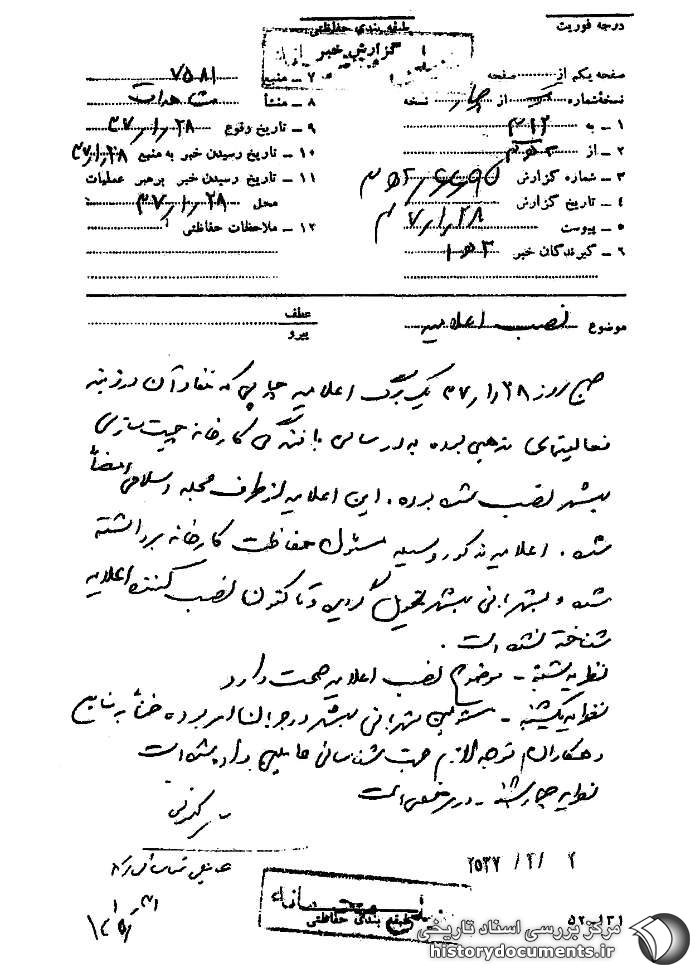 درجه فوریت
طبقه بندی حفاظتی
گزارش خبر
صفحه یکم از صفحه
نسخه شماره یک از چهار نسخه
۱ ـ به ۳۱۲
۲ ـ از
۳ ـ شماره گزارش
۴ ـ تاریخ گزارش ۳۷/۱/۲۸
۵ ـ پیوست
۶ ـ گیرندگان خبر
۷ ـ منبع ۷۵۸۱
۸ ـ منشأ مشاهدات
۹ ـ تاریخ وقوع ۳۷/۱/۲۸
۱۰ ـ تاریخ رسیدن خبر به منبع ۳۷/۱/۲۸
۱۱ ـ تاریخ رسیدن خبر برهبر عملیات
محل ۳۷/۱/۲۸
۱۲ ـ ملاحظات حفاظتی
موضوع نصب اعلامیه
عطف
پیرو
صبح روز ۳۷/۱/۲۸ یک برگ اعلامیه چاپی که مفاد آن در زمینه
فعالیتهای مذهبی بوده به در سالن بافندگی کارخانه چیت سازی
بهشهر نصب شده بوده . این اعلامیه از طرف مجله اسلامی امضأ
شده . اعلامیه مذکور وسیله مسئول حفاظت کارخانه برداشته
شده و بشهربانی بهشهر تحویل گردیده و تا کنون نصب کننده اعلامیه
شناخته نشده است .
نظریه شنبه ـ موضوع نصب اعلامیه صحت دارد
نظریه یکشنبه ـ مسئولین شهربانی بهشهر در جریان امر بوده ضمناً به منابع
و همکاران توجه لازم جهت شناسائی عاملین داده شده است
نظریه چهارشنبه ـ در مرخصی است
۲۵۳۷/۲/۲
طبقه بندی حفاظتی
۵۲-۱۳۱
مرکز بررسی اسناد تاریخی
historydocuments.ir